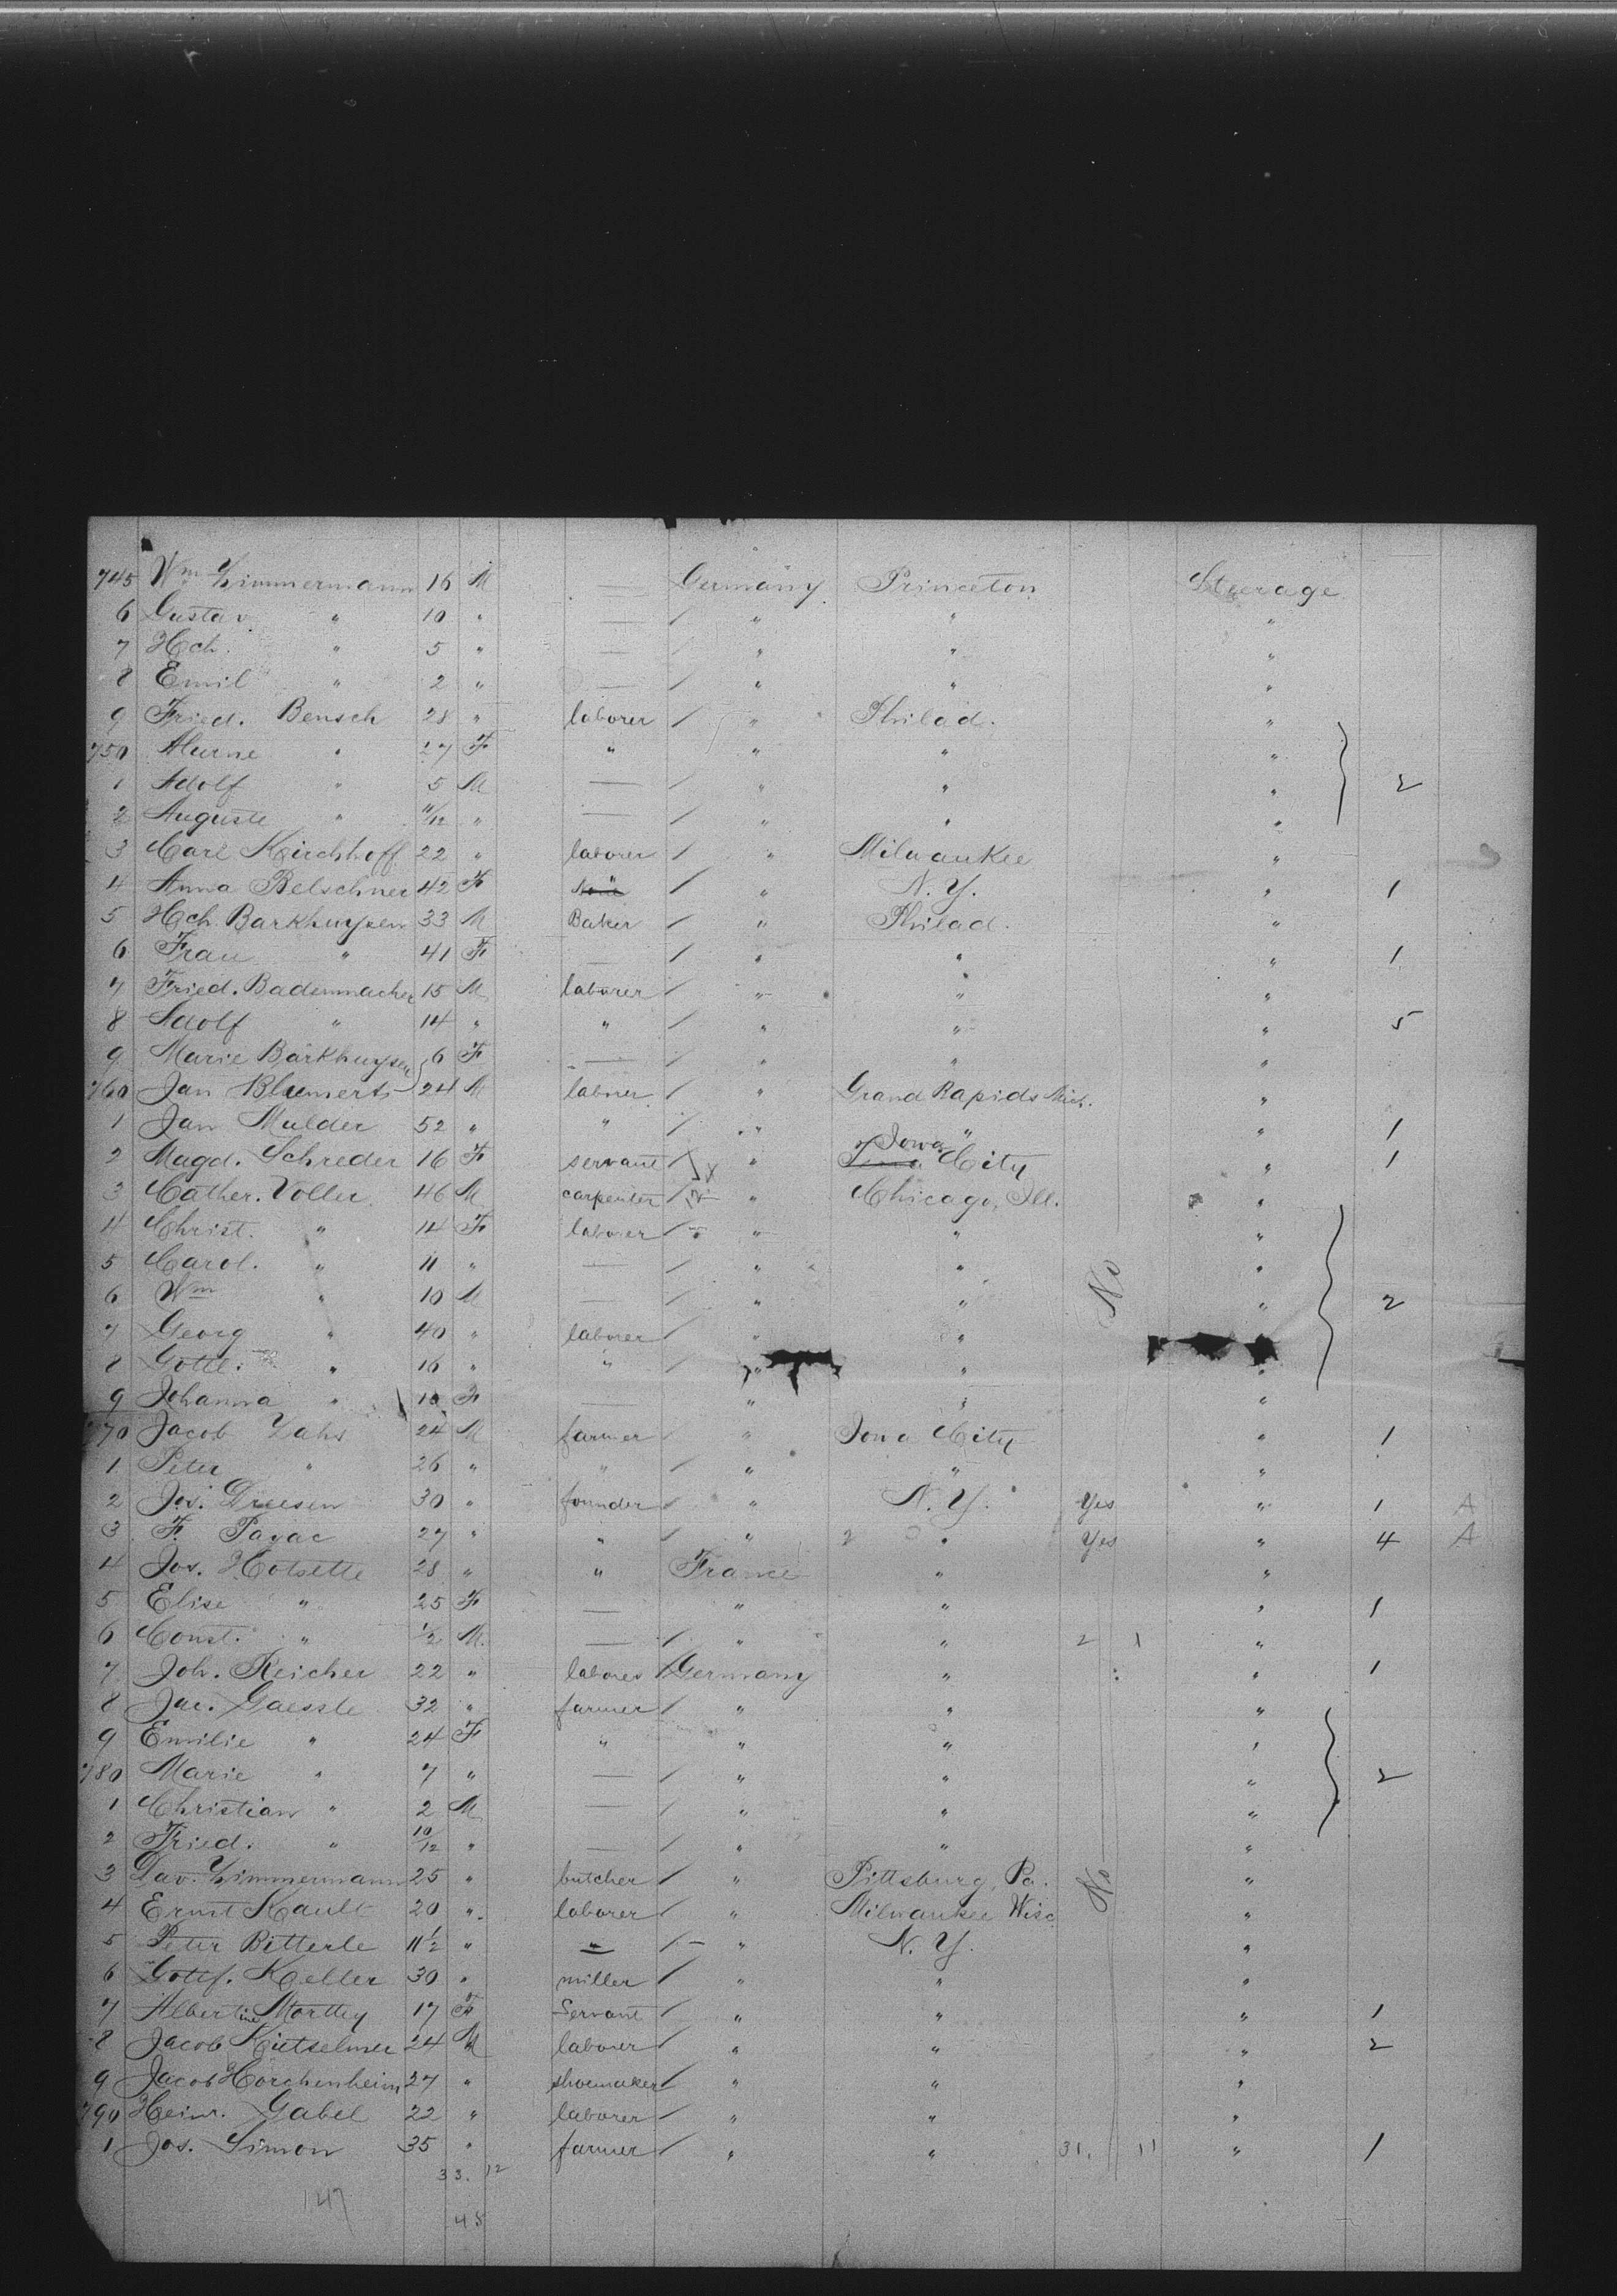 745 Wm Zimmermann 16 M — Germany Princeton Steerage
6 Gustav " 10 " — / " " "
7 Hch. " 5 " — / " " "
8 Emil " 2 " — / " " "
9 Fried. Bensch 28 " laborer / " Philad. "
750 " 27 F " " " "
1 Adolf " 5 M — / " " " 2
2 Auguste " 11/12 " — / " " "
3 Carl Kirchhoff 22 " laborer / " Milwaukee "
4 Anna Belschner 42 F / " N. Y. " 1
5 Hch Barkhuysen 33 M Baker / " Philad. "
6 Frau " 41 F — / " " " 1
7 Fried. Badenmacher 15 M laborer / " " "
8 Adolf " 14 " " / " " " 5
9 Marie Barkhuysen 6 F — / " " "
760 Jan Blumerts 24 M laborer " Grand Rapids Mich. "
1 Jan Mulder 52 " " / " " " 1
2 Magd. Schreder 16 F servant / " Iowa City " 1
3 Cather. Voller 46 M carpenter / " Chicago, Ill. "
4 Christ. " 14 F laborer / " " "
5 Carol. " 11 " — / " " "
6 Wm " 10 M — / " " No " 2
7 Georg " 40 " laborer / " " "
8 Gottl. " 16 " " / " " "
9 Johanna " 10 F — " " "
770 Jacob Zahs 24 M farmer / " Iowa City " 1
1 Peter " 26 " " / " " "
2 Jos. Driesen 30 " founder / " N. Y. Yes " 1 A
3 F. Payac 27 " " / " 2 " Yes " 4 A
4 Jos. Hotsette 28 " " France " "
5 Elise " 25 F — " " " 1
6 Const. " 1/2 M. — / " " 2 1 "
7 Joh. Reicher 22 " laborer / Germany " " 1
8 Jac. Gaessle 32 " farmer / " " "
9 Emilie " 24 F " " " "
780 Marie " 7 " — / " " " 2
1 Christian " 2 M — / " " "
2 Fried. " 10/12 " — / " " "
3 Dav. Zimmermann 25 " butcher / " Pittsburg, Pa. No "
4 Ernst Kault 20 " laborer / " Milwaukee Wisc "
5 Peter Bitterle 11 1/2 " " / — " N. Y. "
6 Gottf. Keller 30 " miller / " " "
7 Albertine Morthy 17 F Servant / " " " 1
8 Jacob Kietselmer 24 M laborer / " " " 2
9 Jacob Horchenheim 27 " shoemaker / " " "
790 Heinr. Gabel 22 " laborer / " " "
1 Jos. Simon 35 " farmer / " " 31. 11 " 1
33. 12
147
45